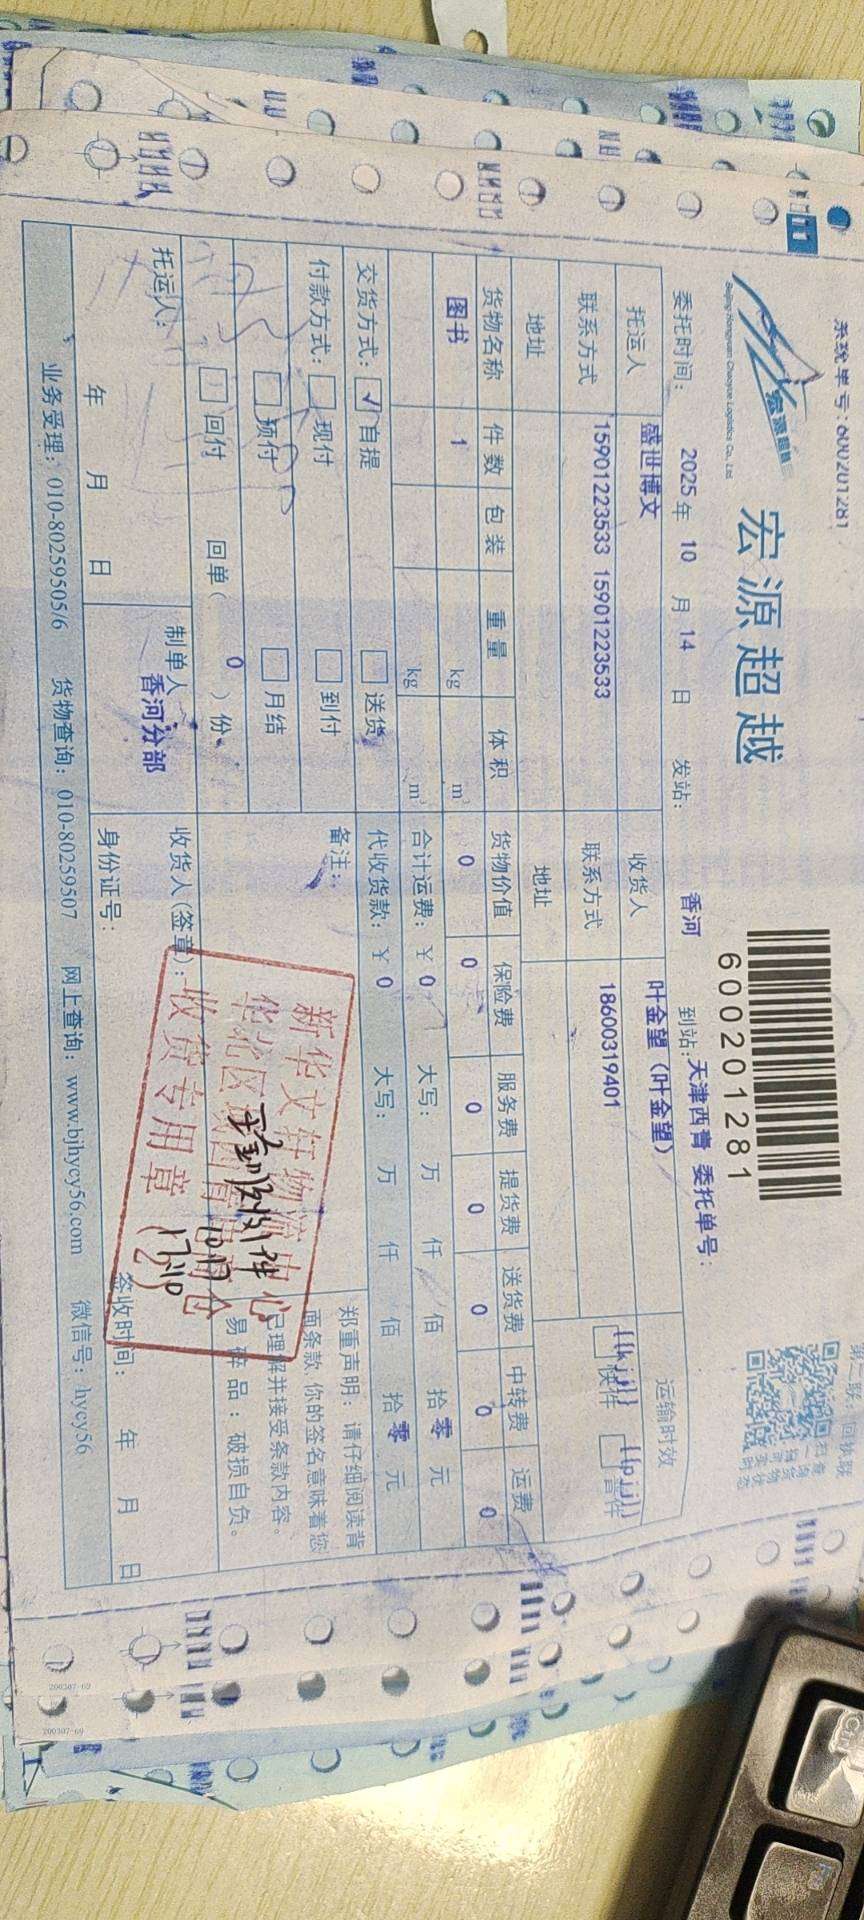 系统单号:600201281
宏源超越
Beijing Hongyuan Chaoyue Logistics Co., Ltd
宏 源 超 越
600201281
第二联:回执联
扫一扫
查询货物
当前实时
状态
委托时间: 2025 年 10 月 14 日 发站: 香河 到站: 天津西青 委托单号:
托运人 盛世博文 收货人 叶金望(叶金望) 运输时效
联系方式 15901223533 15901223533 联系方式 18600319401 {{kjj}} 快件 {{pjj}} 普件
地址 地址
货物名称 件数 包装 重量 体积 货物价值 保险费 服务费 提货费 送货费 中转费 运费
图书 1 kg m³ 0 0 0 0 0 0 0
kg m³ 合计运费: ¥ 0 大写: 万 仟 佰 拾 零 元
交货方式: ✓ 自提 送货 代收货款: ¥ 0 大写: 万 仟 佰 拾 零 元
付款方式: 现付 到付 备注:
预付 月结
回付 回单( 0 )份
郑重声明: 请仔细阅读背
面条款,你的签名意味着您
已理解并接受条款内容。
易碎品:破损自负。
托运人: 制单人 香河分部 收货人(签章): 签收时间:
年 月 日 身份证号: 年 月 日
新华文轩物流中心
华北区
收货专用章
(2)
10.17
17:10
业务受理: 010-80259505/6 货物查询: 010-80259507 网上查询: www.bjhycy56.com 微信号: hycy56
200307-69
200307-69